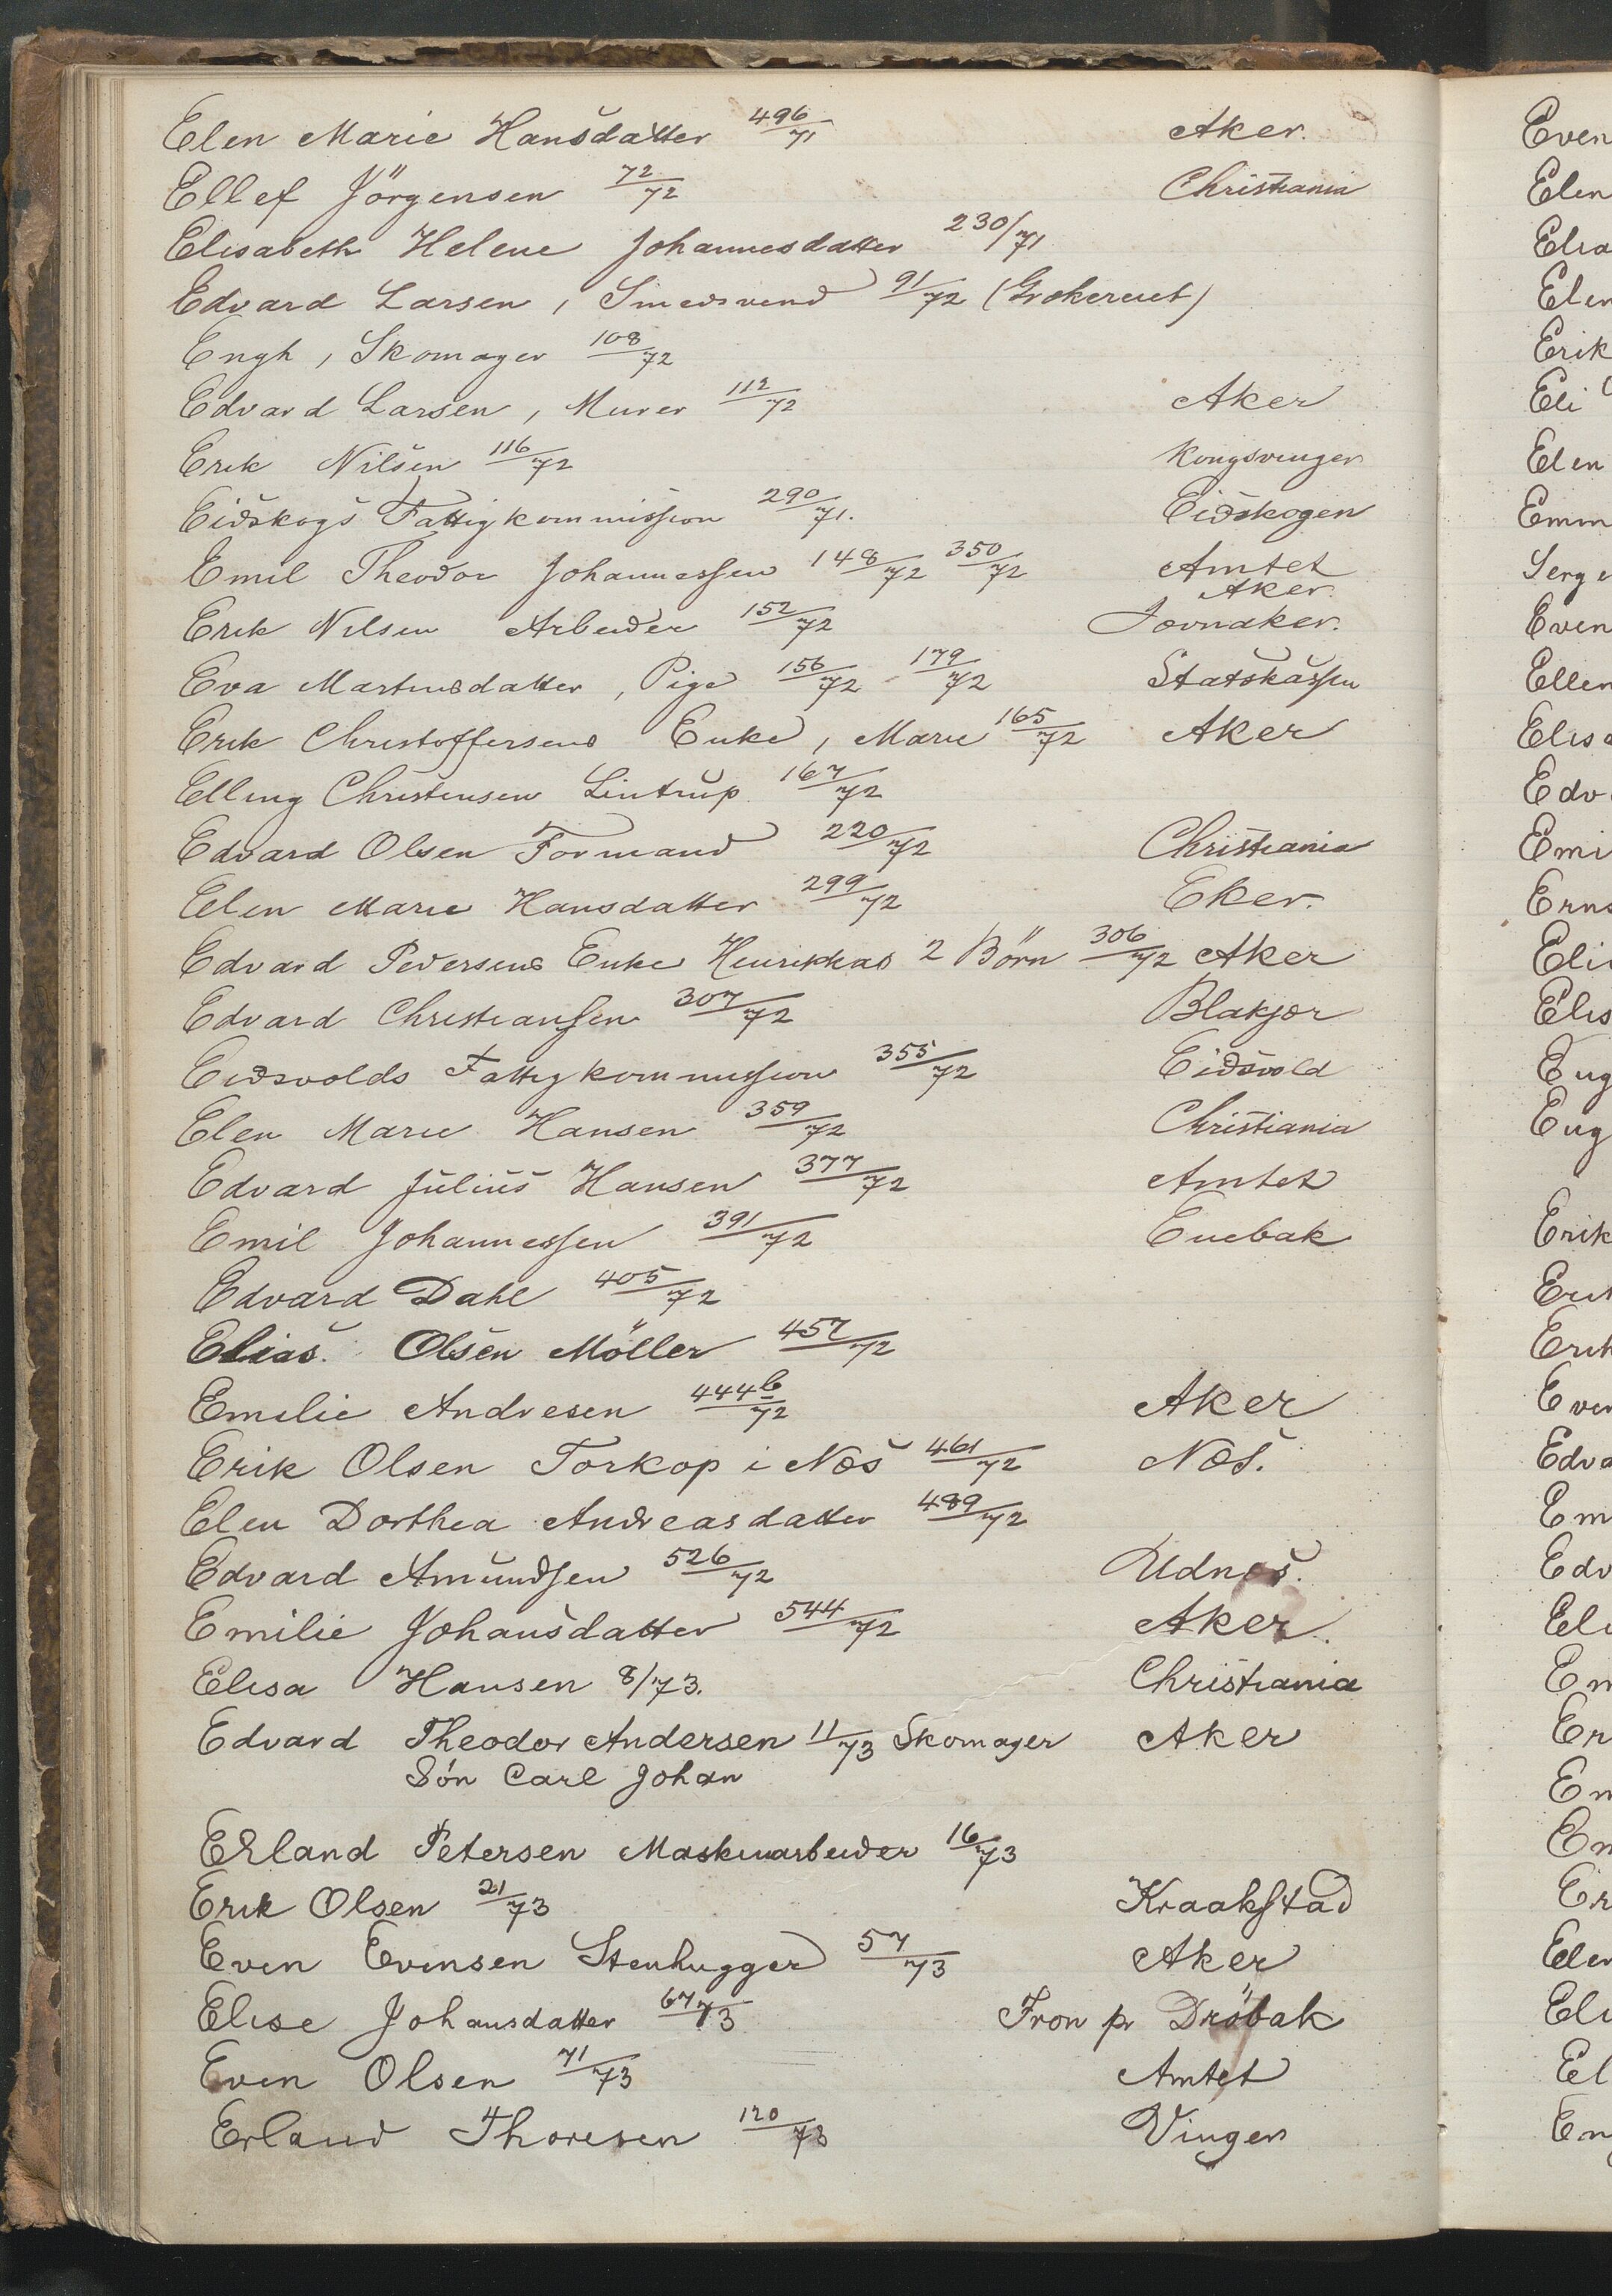 Elen Marie Hansdatter 496/71 Aker.
Ellef Jörgensen 72/72 Christiania
Elisabeth Helene Johannesdatter 230/71
Edvard Larsen, Smedsvend 91/72 (Grokeruet)
Engh, Skomager 108/72
Edvard Larsen, Murer 112/72 Aker
Erik Nilsen 116/72 Kongsvinger
Eidskogs Fattigkommission 290/71. Eidskogen
Emil Theodor Johannessen 148/72 350/72 Amtet
Aker.
Erik Nilsen Arbeider 152/72 Jævnaker.
Eva Martinsdatter, Pige 156/72 179/72 Statskassen
Erik Christoffersens Enke, Marie 165/72 Aker
Elling Christensen Lintrup 167/72
Edvard Olsen Formand 220/72 Christiania
Elen Marie Hansdatter 299/72 Eker.
Edvard Pedersens Enke Henrikkas 2 Börn 306/72 Aker
Edvard Christiansen 307/72 Blakjær
Eidsvolds Fattigkommission 355/72 Eidsvold
Elen Marie Hansen 359/72 Christiania
Edvard Julius Hansen 377/72 Amtet
Emil Johannessen 391/72 Enebak
Edvard Dahl 405/72
Elias Olsen Möller 457/72
Emilie Andresen 444b/72 Aker
Erik Olsen Torkop i Næs 461/72 Næs.
Elen Dorthea Andreasdatter 489/72
Edvard Amundsen 526/72 Udnæs.
Emilie Johansdatter 544/72 Aker.
Elisa Hansen 8/73. Christiania
Edvard Theodor Andersen 11/73 Skomager Aker
Sön Carl Johan
Erland Petersen Maskinarbeider 16/73
Erik Olsen 21/73 Kraakstad
Even Evensen Stenhugger 57/73 Aker
Elise Johansdatter 67/73 Fron pr Dröbak
Even Olsen 71/73 Amtet
Erland Thoresen 120/73 Vinger
Even
Elen
Elen
Erik
Eli
Elen
Even
Ellen
Erik